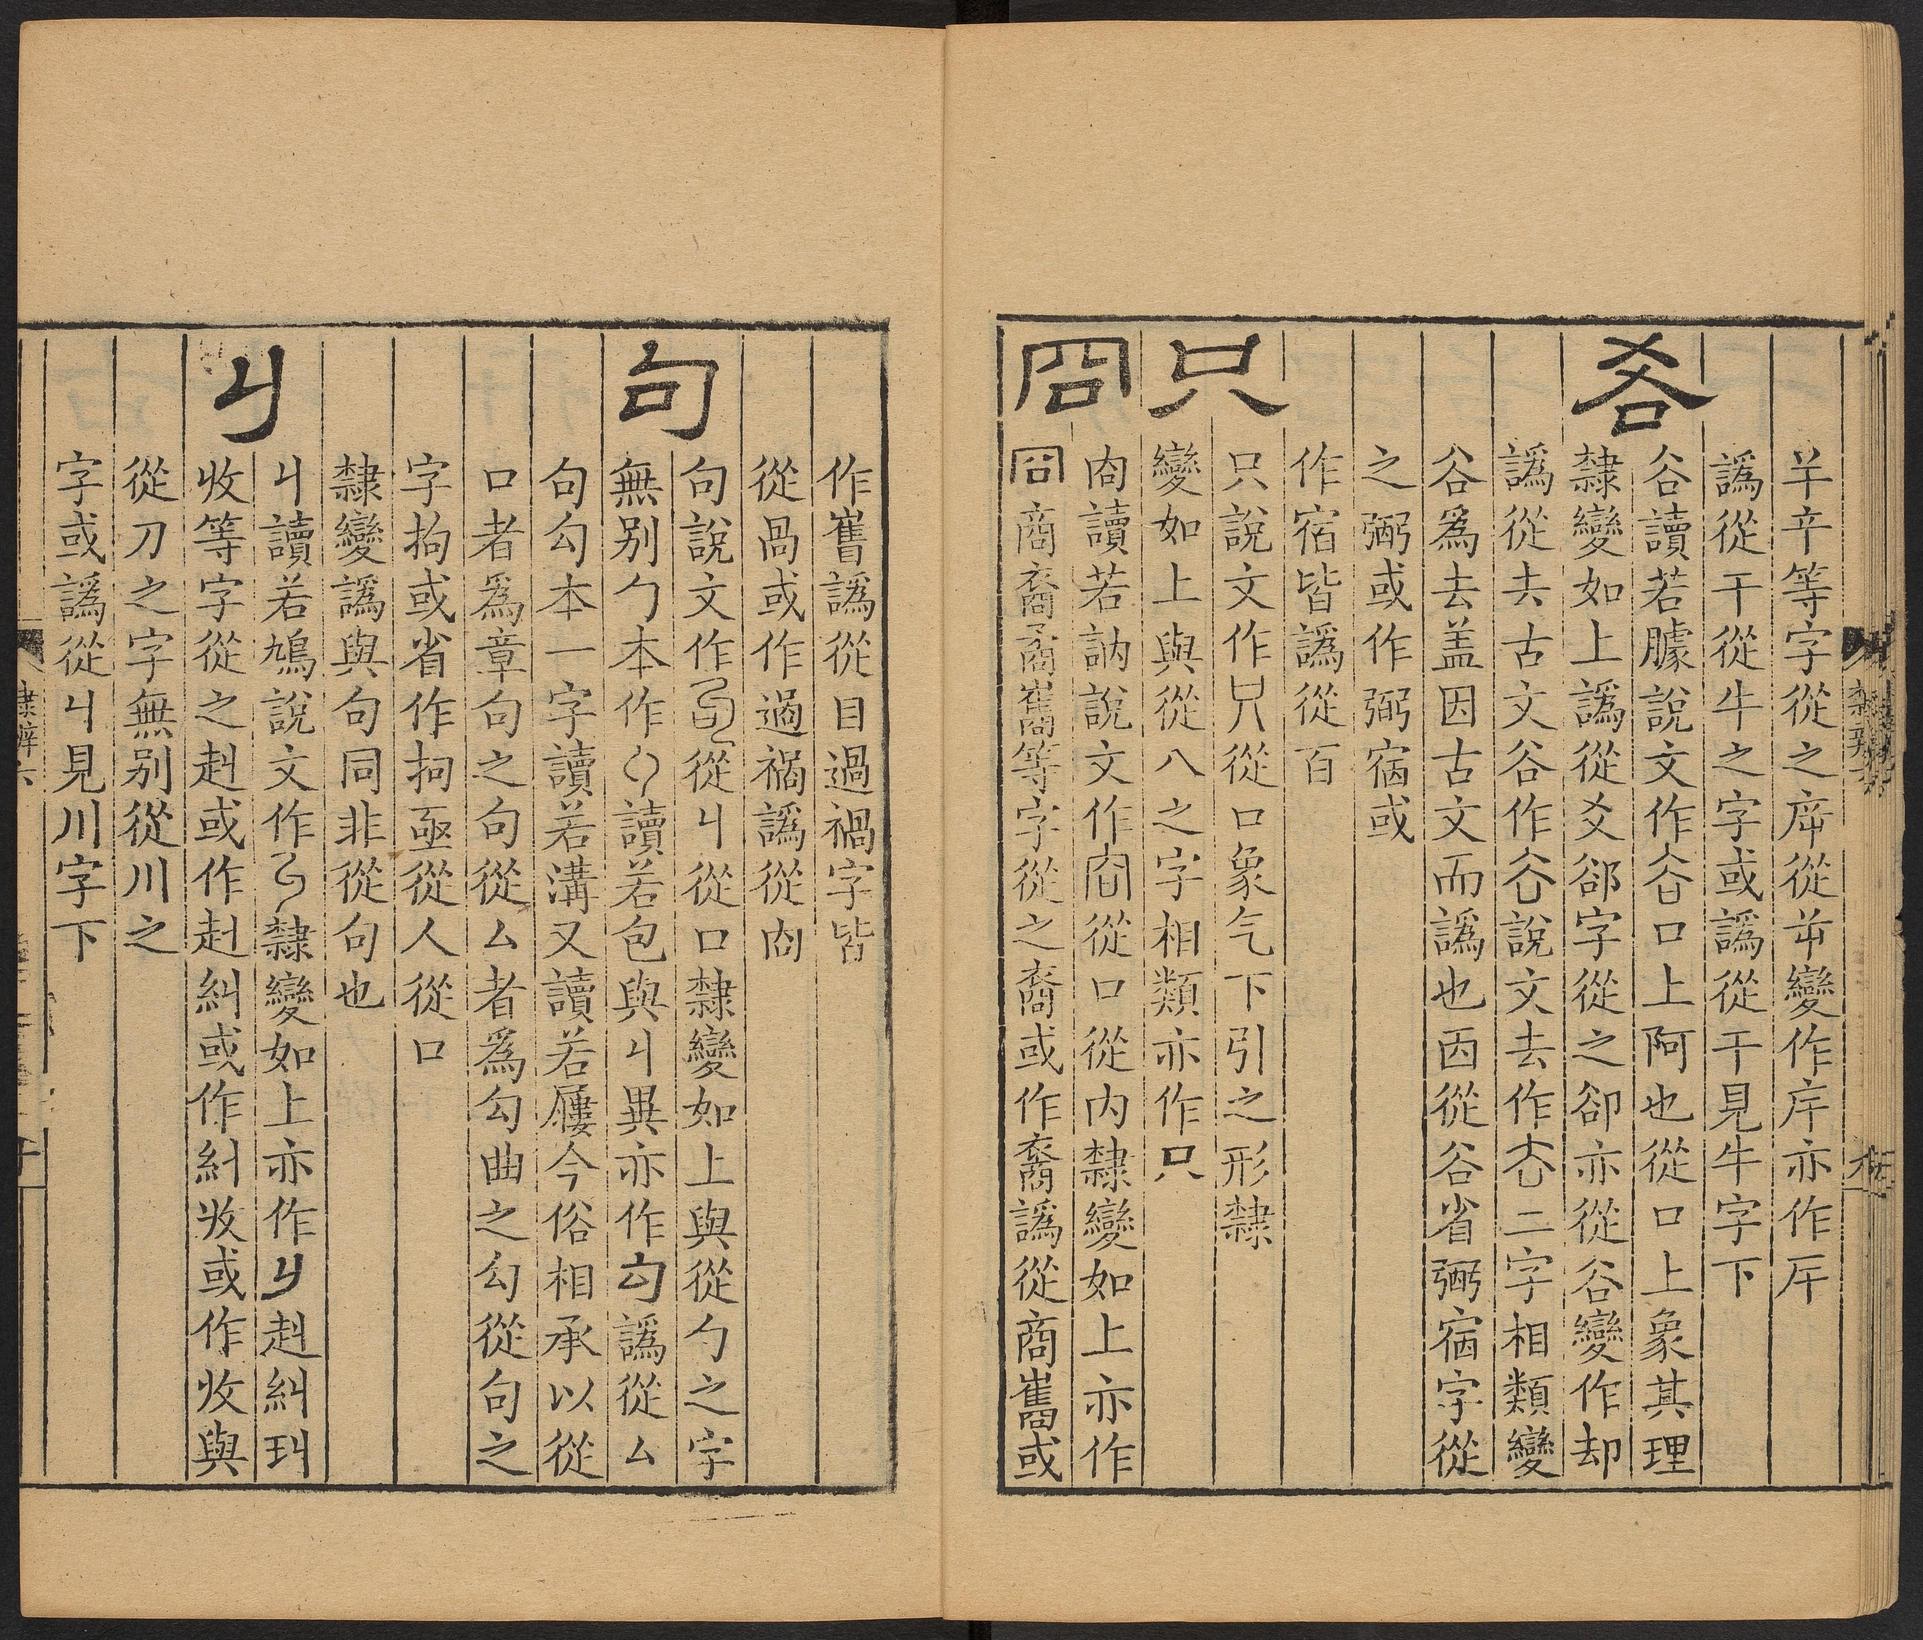 羊辛等字從之㡿從屰變作庍亦作斥
譌從干從牛之字或譌從干見牛字下
谷
谷讀若臄說文作𧮫口上阿也從口上象其理
隸變如上譌從爻郤字從之卻亦從谷變作却
譌從去古文谷作𧮫說文去作厺二字相類變
谷爲去盖因古文而譌也𠀬從谷省弼宿字從
之弼或作弼宿或
作宿皆譌從百
只
只說文作只從口象气下引之形隸
變如上與從八之字相類亦作只
㕯
㕯讀若訥說文作㕯從口從内隸變如上亦作
㕯商裔矞巂等字從之裔或作裔譌從商巂或
作舊譌從目過禍字皆
從咼或作過禍譌從㕯
句
句說文作從丩從口隸變如上與從勹之字
無别勹本作讀若包與丩異亦作勾譌從厶
句勾本一字讀若溝又讀若屨今俗相承以從
口者爲章句之句從厶者爲勾曲之勾從句之
字拘或省作抲亟從人從口
隸變譌與句同非從句也
丩
丩讀若鳩說文作隸變如上亦作赳糾㺩
收等字從之赳或作赳糾或作糾收或作收與
從刀之字無别從川之
字或譌從丩見川字下
隸辨六